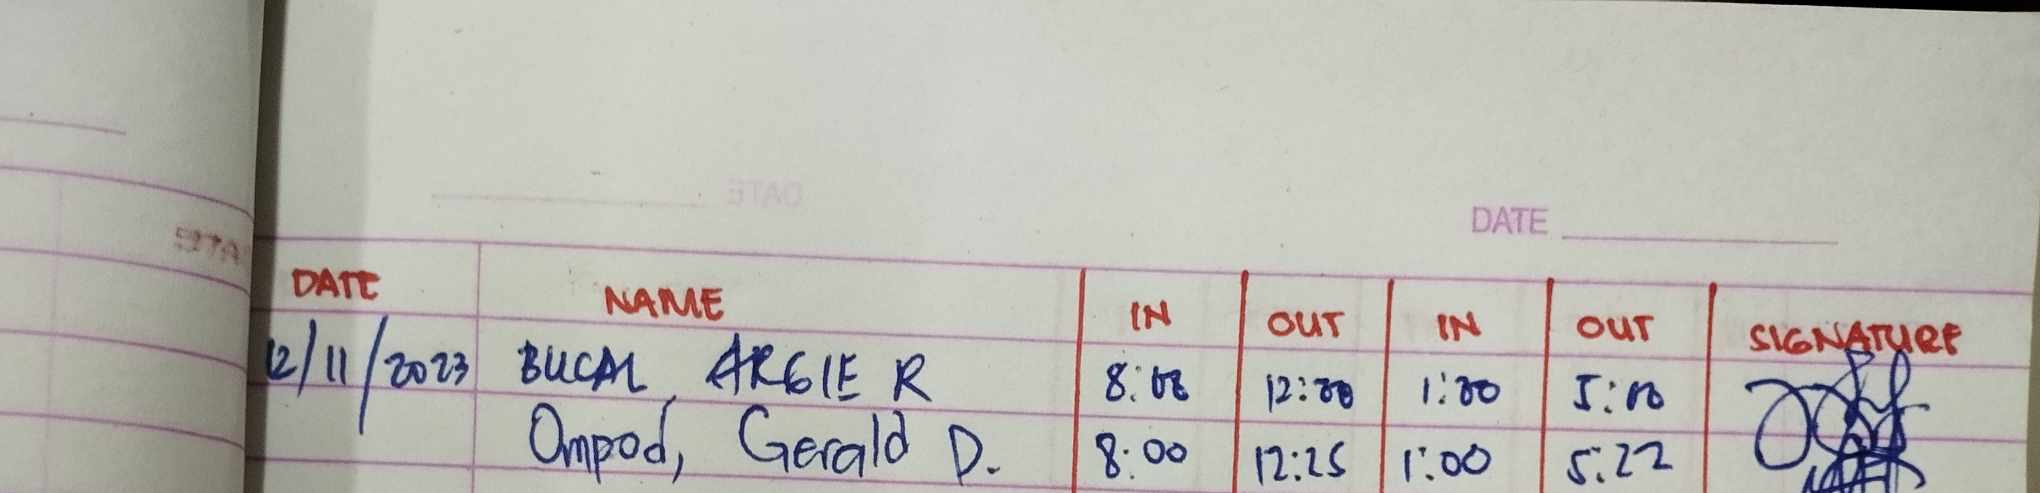 DATE
DATE NAME IN OUT IN OUT SIGNATURE
12/11/2023 BUCAL, ARGIE R 8:00 12:00 1:00 5:00
Ompod, Gerald D. 8:00 12:25 1:00 5:22